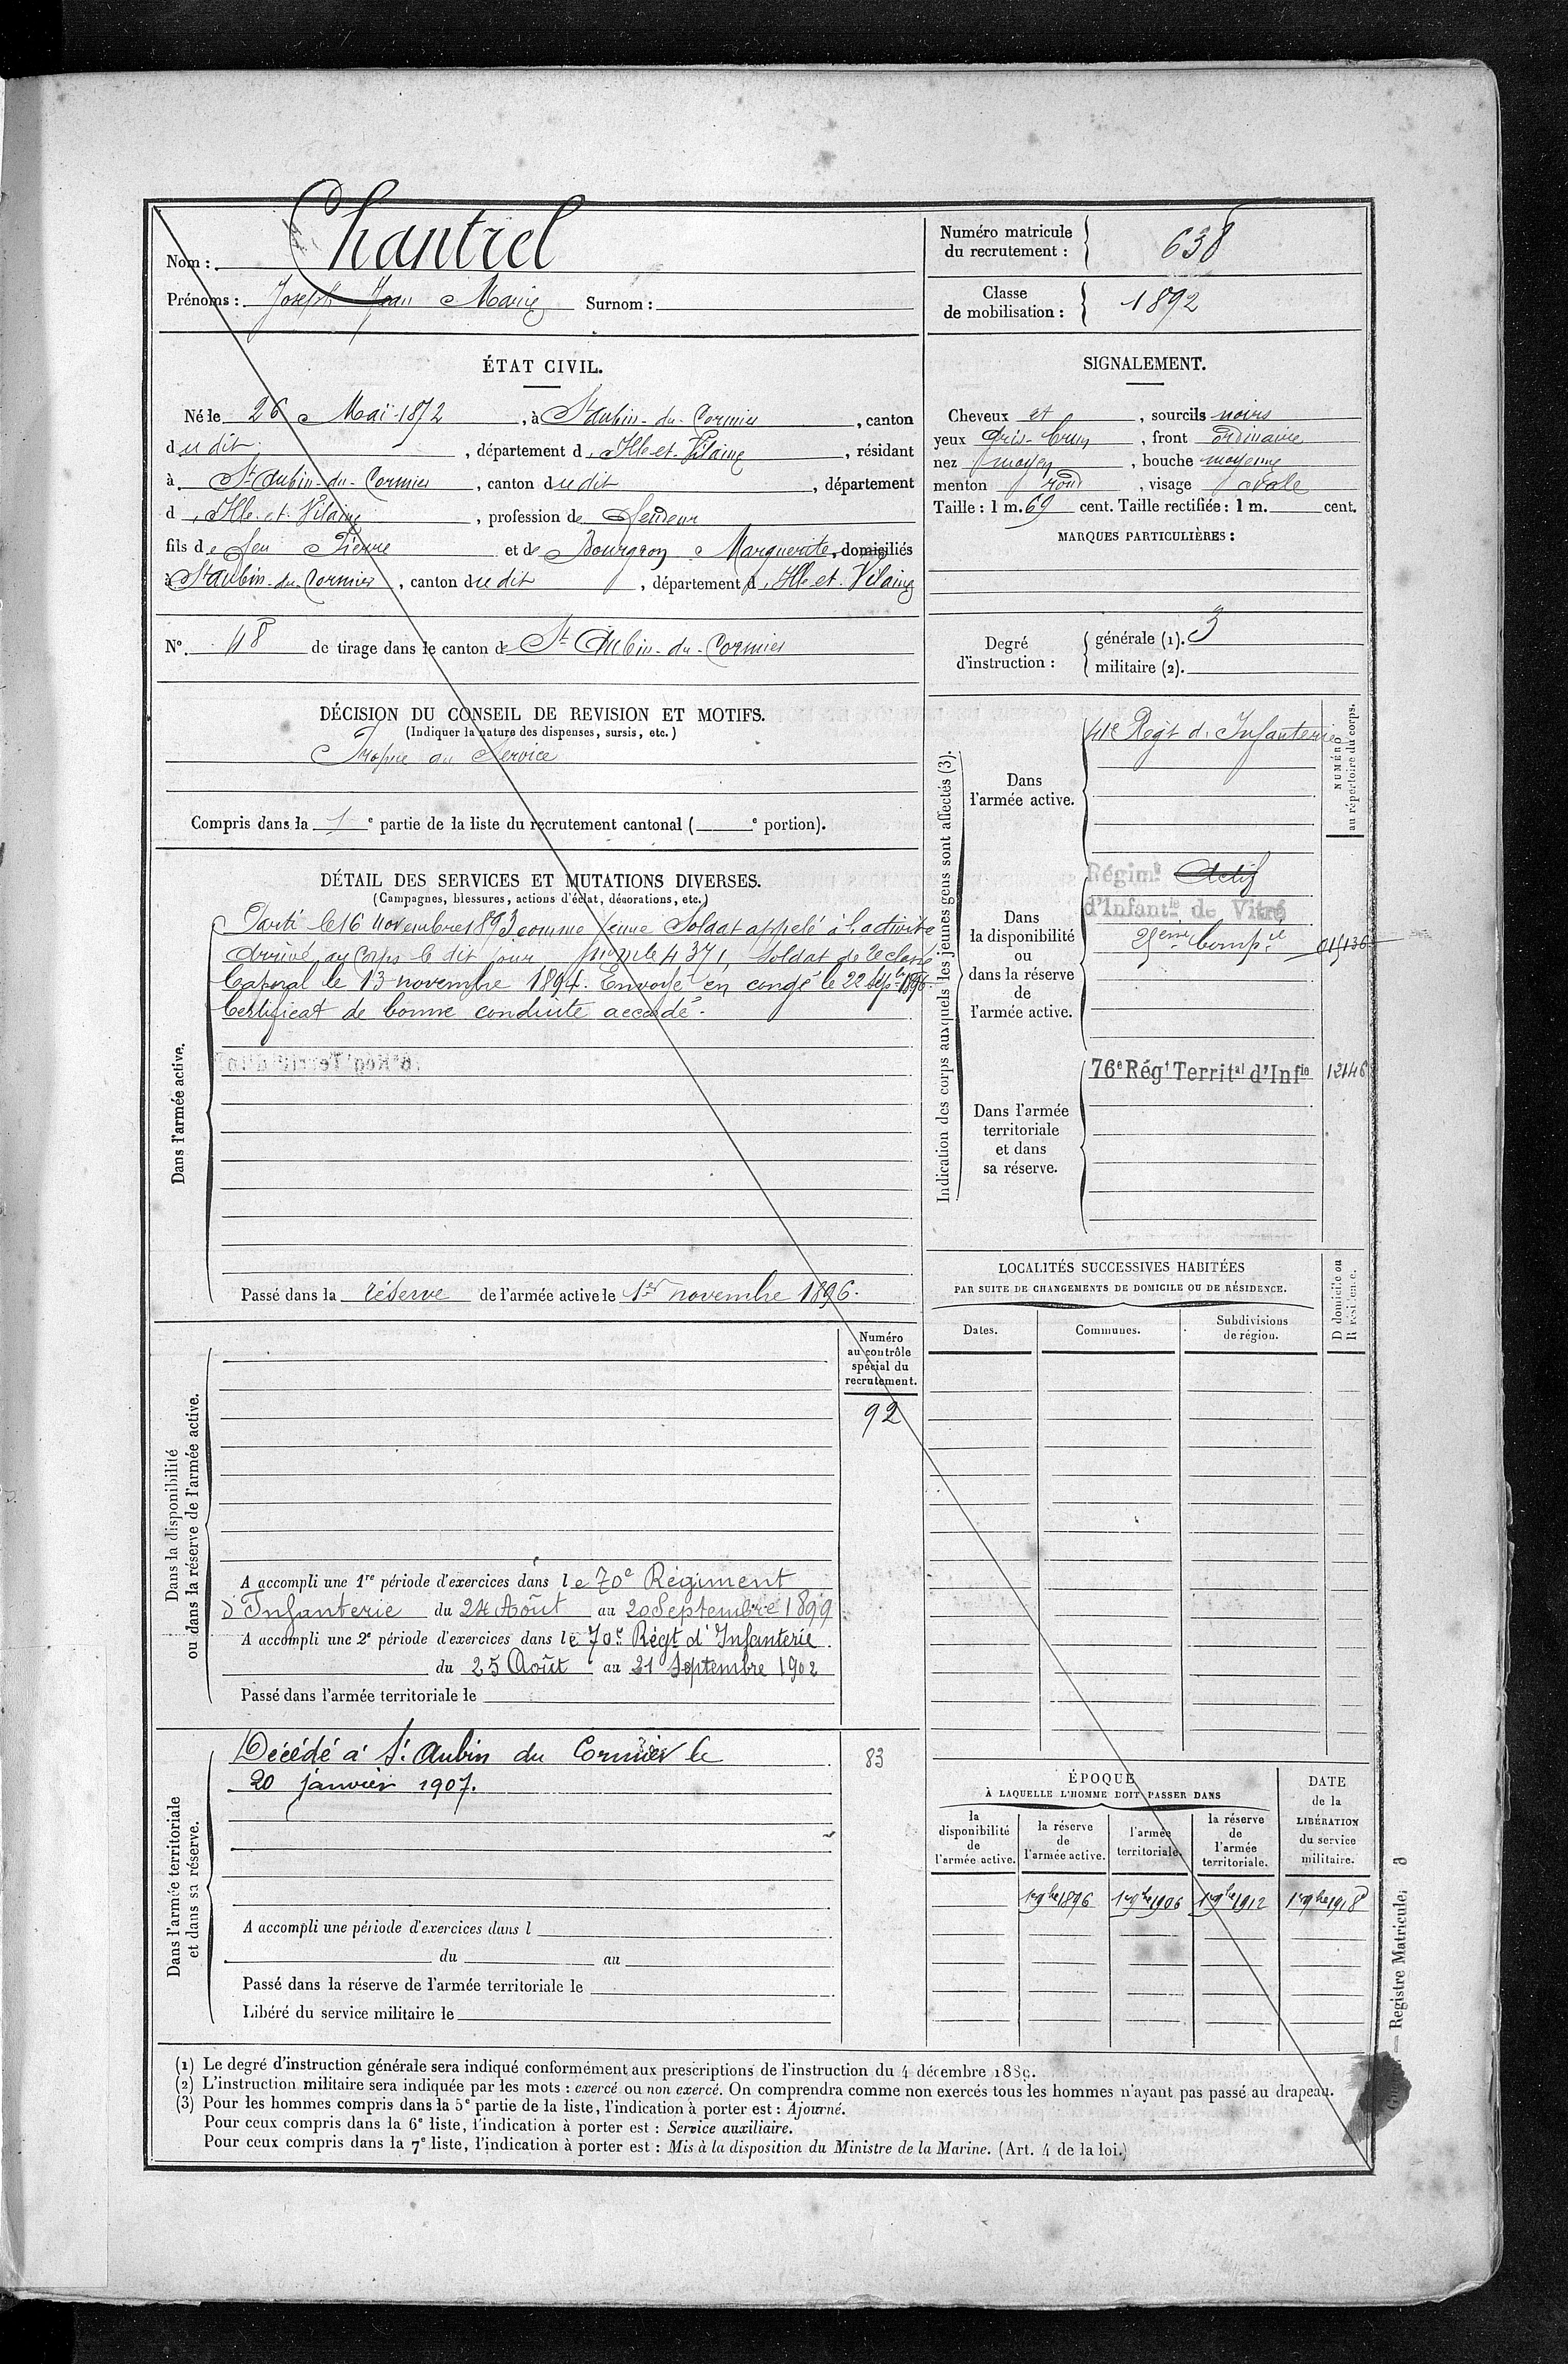 Nom : Chantrel
Prénoms : Joseph Jean Marie Surnom :
Numéro matricule du recrutement : 638
Classe de mobilisation : 1892
ÉTAT CIVIL.
Né le 26 Mai 1872, à St Aubin-du-Cormier, canton
dudit, département d'Ille-et-Vilaine, résidant
à St Aubin-du-Cormier, canton dudit, département
d'Ille-et-Vilaine, profession de
fils de feu Pierre et de Marguerite, domiciliés
à St Aubin-du-Cormier, canton dudit, département d'Ille-et-Vilaine
N° 48 de tirage dans le canton de St Aubin-du-Cormier
SIGNALEMENT.
Cheveux et, sourcils noirs
yeux gris-brun, front ordinaire
nez moyen, bouche moyenne
menton rond, visage ovale
Taille : 1 m. 69 cent. Taille rectifiée : 1 m. cent.
MARQUES PARTICULIÈRES :
Degré d'instruction :
générale (1). 3
militaire (2).
DÉCISION DU CONSEIL DE REVISION ET MOTIFS.
(Indiquer la nature des dispenses, sursis, etc.)
Propre au Service
Compris dans la 1e partie de la liste du recrutement cantonal ( e portion).
DÉTAIL DES SERVICES ET MUTATIONS DIVERSES.
(Campagnes, blessures, actions d'éclat, décorations, etc.)
Dans l'armée active.
Parti le 16 novembre 1893 comme jeune Soldat appelé à l'activité
Arrivé au Corps le dit jour 4371 Soldat de 2e classe
Caporal le 13 novembre 1894. Envoyé en congé le 22 Sept. 1896.
Certificat de bonne conduite accordé.
Passé dans la réserve de l'armée active le 1er novembre 1896.
Indication des corps auxquels les jeunes gens sont affectés (3).
NUMÉRO au répertoire du corps.
Dans l'armée active.
41e Régt d'Infanterie
Dans la disponibilité ou dans la réserve de l'armée active.
Régimt Actif
d'Infantie de Vitré
Dans l'armée territoriale et dans sa réserve.
76e Régt Territal d'Infie 12146
LOCALITÉS SUCCESSIVES HABITÉES
PAR SUITE DE CHANGEMENTS DE DOMICILE OU DE RÉSIDENCE.
Dates. Communes. Subdivisions de région. D domicile ou R résidence.
Dans la disponibilité ou dans la réserve de l'armée active.
Numéro au contrôle spécial du recrutement.
92
A accompli une 1re période d'exercices dans le 70e Régiment
d'Infanterie du 24 Août au 20 Septembre 1899
A accompli une 2e période d'exercices dans le 70e Régt d'Infanterie
du 25 Août au 21 Septembre 1902
Passé dans l'armée territoriale le
Dans l'armée territoriale et dans sa réserve.
Décédé à St Aubin du Cormier le 83
20 janvier 1907.
A accompli une période d'exercices dans l
du au
Passé dans la réserve de l'armée territoriale le
Libéré du service militaire le
ÉPOQUE
À LAQUELLE L'HOMME DOIT PASSER DANS
la disponibilité de l'armée active.
la réserve de l'armée active.
l'armée territoriale.
la réserve de l'armée territoriale.
DATE de la LIBÉRATION du service militaire.
1er 9bre 1896 1er 9bre 1906 1er 9bre 1912 1er 9bre 1918
— Registre Matricule.
(1) Le degré d'instruction générale sera indiqué conformément aux prescriptions de l'instruction du 4 décembre 1889.
(2) L'instruction militaire sera indiquée par les mots : exercé ou non exercé. On comprendra comme non exercés tous les hommes n'ayant pas passé au drapeau.
(3) Pour les hommes compris dans la 5e partie de la liste, l'indication à porter est : Ajourné.
Pour ceux compris dans la 6e liste, l'indication à porter est : Service auxiliaire.
Pour ceux compris dans la 7e liste, l'indication à porter est : Mis à la disposition du Ministre de la Marine. (Art. 4 de la loi.)